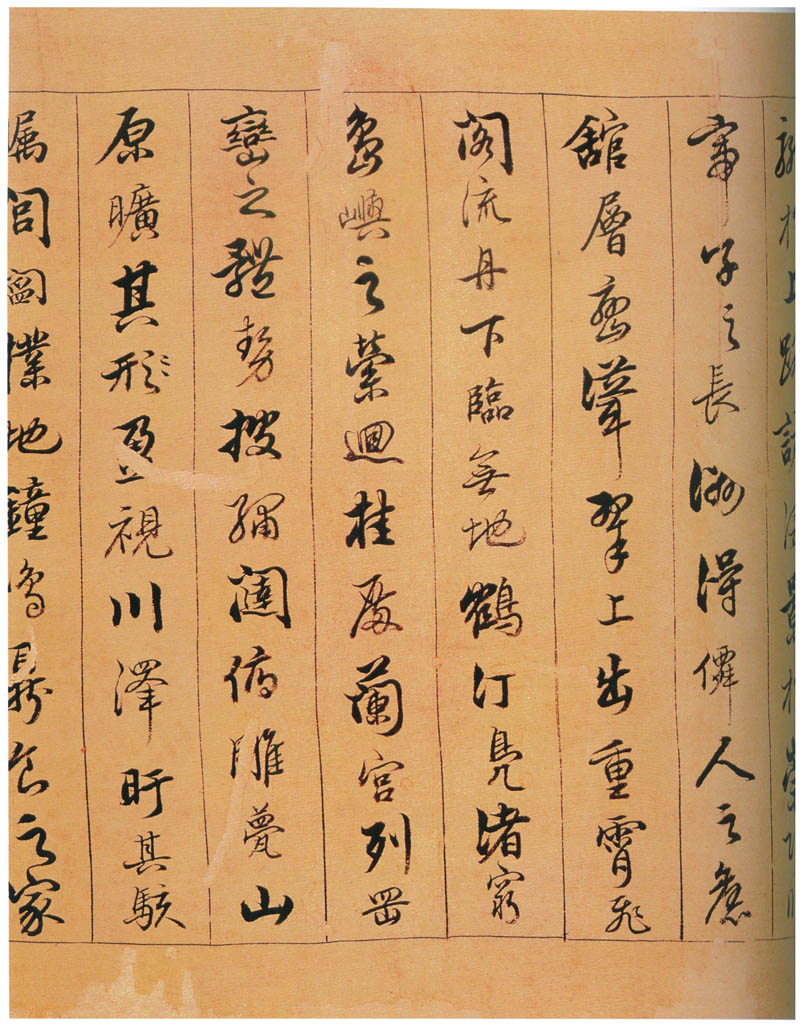 於上路訪風景於崇
帝子之長洲得僊人之舊
舘層巒聳翠上出重霄飛
閣流丹下臨無地鶴汀鳧渚窮
島嶼之縈迴桂殿蘭宮列岡
巒之體勢披繡闥俯雕甍山
原曠其形盈視川澤盱其駭
矚閭閻撲地鐘鳴鼎食之家